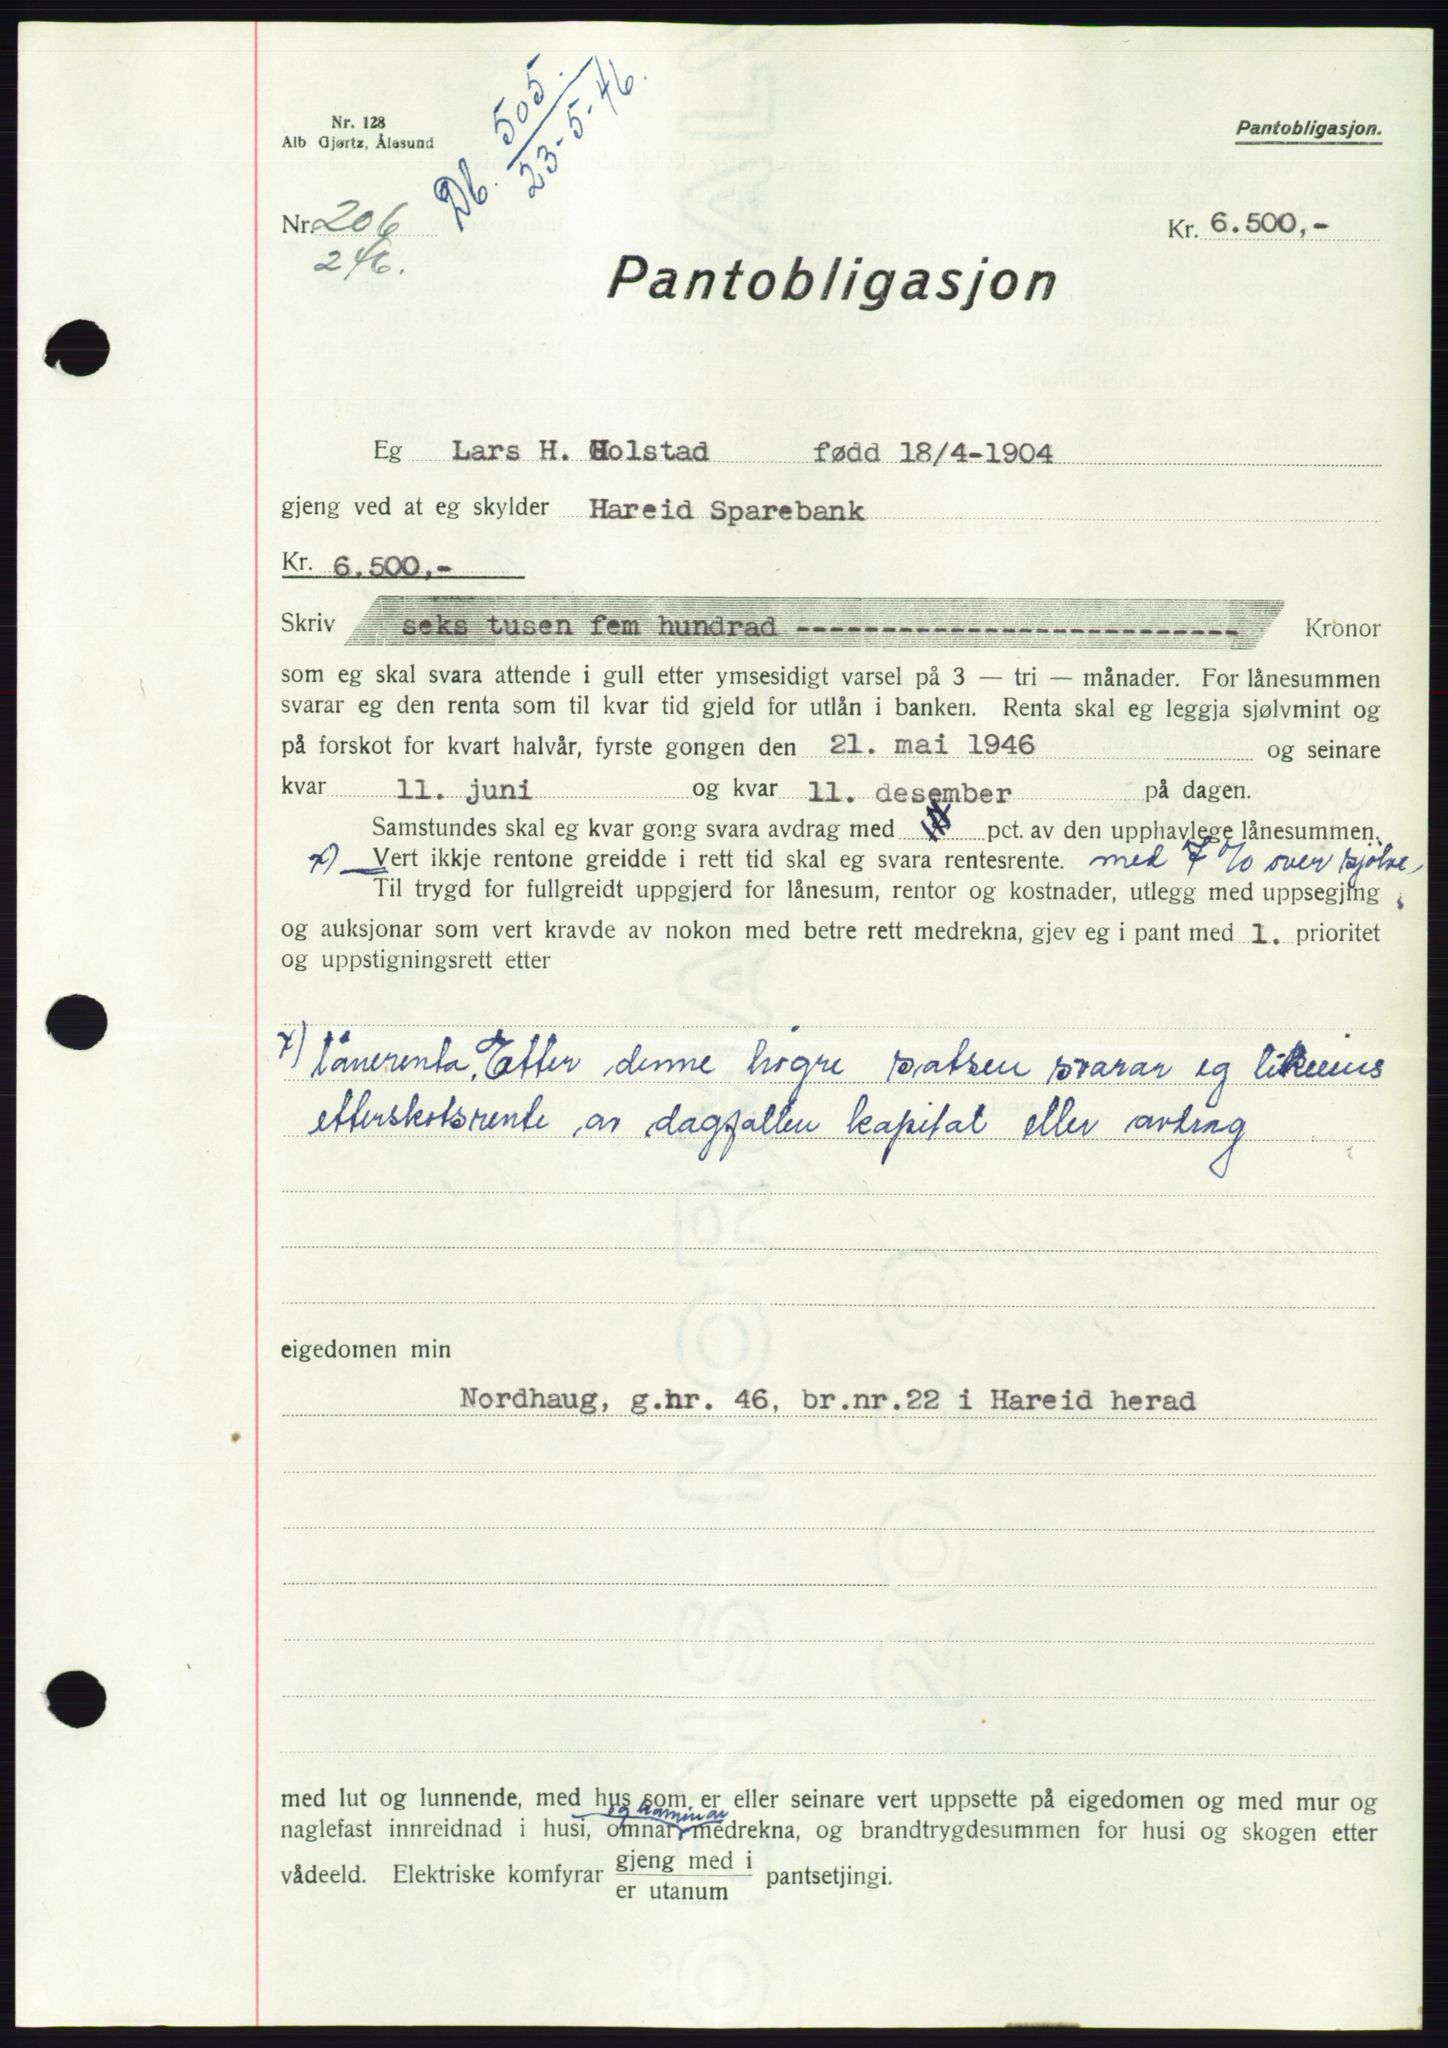 Nr. 128
Alb Gjørtz, Ålesund
Db. 505.
23-5-46.
Pantobligasjon.
Nr. 206
246.
Kr. 6.500,-
Pantobligasjon
Eg Lars H. Holstad fødd 18/4-1904
gjeng ved at eg skylder Hareid Sparebank
Kr. 6.500,-
Skriv seks tusen fem hundrad ---------------------------- Kronor
som eg skal svara attende i gull etter ymsesidigt varsel på 3 — tri — månader. For lånesummen
svarar eg den renta som til kvar tid gjeld for utlån i banken. Renta skal eg leggja sjølvmint og
på forskot for kvart halvår, fyrste gongen den 21. mai 1946 og seinare
kvar 11. juni og kvar 11. desember på dagen.
Samstundes skal eg kvar gong svara avdrag med pct. av den upphavlege lånesummen.
x) Vert ikkje rentone greidde i rett tid skal eg svara rentesrente. med 7 % over sjølve
Til trygd for fullgreidt uppgjerd for lånesum, rentor og kostnader, utlegg med uppsegjing
og auksjonar som vert kravde av nokon med betre rett medrekna, gjev eg i pant med 1. prioritet
og uppstigningsrett etter
x) lånerenta. Etter denne högre satsen svarar eg likeeins
etterskotsrente av dagfallen kapital eller avdrag
eigedomen min
Nordhaug, g.nr. 46, br.nr.22 i Hareid herad
med lut og lunnende, med hus som er eller seinare vert uppsette på eigedomen og med mur og
og kaminar
naglefast innreidnad i husi, omnar medrekna, og brandtrygdesummen for husi og skogen etter
vådeeld. Elektriske komfyrar gjeng med i pantsetjingi.
er utanum